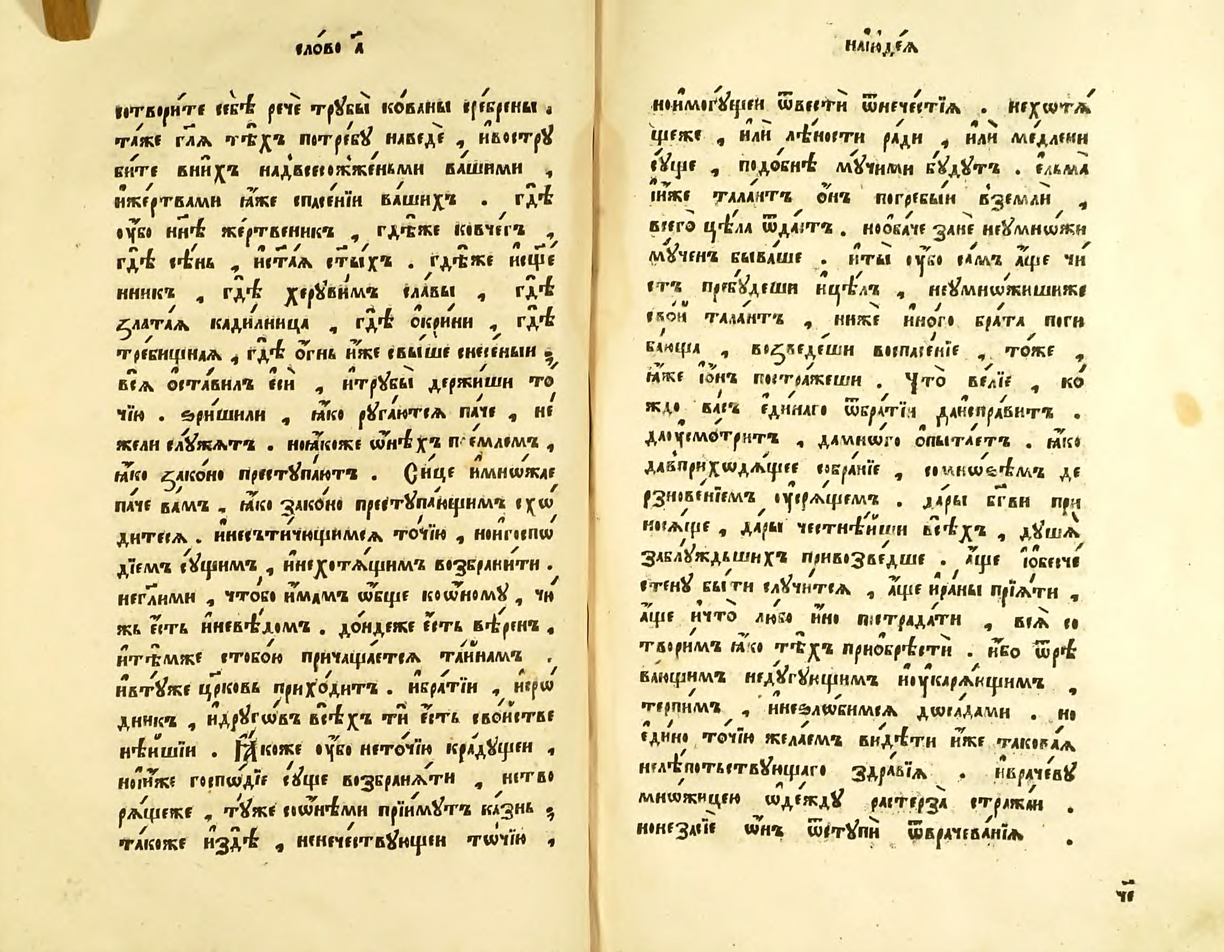 сло́во а҃
сотвори́те себѣ̀ речѐ трꙋбы̀ ко́ваны сре́брены .
та́же гл҃ѧ тѣ́хъ потре́бꙋ наведѐ , ивострꙋ
би́те вни́хъ надвсесожже́ньми ва́шими ,
ижертвами ꙗ҆́же спасе́нїи ва́шихъ . гдѣ̀
ᲂу҆́бо нн҃ѣ же́ртвеникъ , гдѣ́же ковче́гъ ,
гдѣ̀ сѣ́нь , иста́ѧ ст҃ы́хъ . гдѣ́же исщ҃е
нникъ , гдѣ̀ херꙋви́мъ сла́вы , гдѣ̀
ꙁлата́ѧ кади́лница , гдѣ̀ ѡ҆кри́ни , гдѣ̀
тре́бищнаѧ , гдѣ̀ о҆́гнь и҆́же свы́ше снесе́ныи ;
всѧ̀ ѡ҆ста́вилъ є҆сѝ , итрꙋбы̀ держи́ши то́
чїю . ѕри́шили , ꙗ҆́ко рꙋга́ютсѧ па́че , не́
жели слꙋ́жатъ . ноꙗ҆́коже ѡ҆нѣ́хъ прие́млемъ ,
ꙗ҆́ко ꙁако́но престꙋпа́ютъ . Си́це и҆мно́жае
па́че ва́мъ , ꙗ҆́ко зако́но престꙋпа́ющимъ схѡ́
дитесѧ . инесътичющимсѧ то́чїю , ноигоспѡ
дїемъ сꙋ́щимъ , инехотѧ́щимъ возбрани́ти .
негл҃ими , чтобо и҆́мамъ ѡ҆́бще коѡ҆́номꙋ , чю
жь є҆́сть иневѣ́домъ . до́ндеже є҆́сть вѣ́ренъ ,
итѣ́мже стобо́ю причаща́етсѧ та́йнамъ .
ивтꙋ́же цр҃ковь прихо́дитъ . ибра́тїи , и҆срѡ
дникъ , идрꙋго́въ всѣ́хъ ти є҆́сть сво́йстве
нѣ́йшїи . Ꙗ҆́коже ᲂу҆́бо нето́чїю крадꙋщеи ,
нои҆́же госпѡ́дїе сꙋ́ще возбранѧ́ти , нетво
рѧ́щеже , тꙋ́же соѡ҆нѣми прїи́мꙋтъ ка́знь ;
та́коже издѣ̀ , ненече́ствꙋющеи то́чїю ,
наїю҆де́ѧ
ноимогꙋ́щеи ѿвестѝ ѿнече́стїѧ . нехотѧ́
щеже , и҆лѝ лѣ́ности ра́ди , и҆лѝ ме́длени
сꙋ́ще , подо́бнѣ мꙋ́чими бꙋ́дꙋтъ . є҆льма̀
и҆́же тала́нтъ ѡ҆́нъ погребы́и вземлѝ ,
всего̀ цѣ́ла ѿда́стъ . нооба́че занѐ неꙋмножи
мꙋ́ченъ быва́ше . иты̀ ᲂу҆́бо са́мъ а҆́ще чи
стъ пребꙋ́деши ицѣ́лъ , неꙋмно́жишиже
сво́й тала́нтъ , ниже и҆но́го бра́та поги
ба́юща , возведе́ши воспасе́нїе , то́же ,
ꙗ҆́же ѡ҆́нъ постра́жеши . Что̀ ве́лїе , ко́
ждо ва́съ є҆ди́наго ѿбра́тїи даиспра́витъ .
даᲂу҆смо́тритъ , дамно́го ѡ҆пыта́етъ . ꙗ҆́ко
давприходѧ́щее собра́нїе , сомно́зѣмъ де
рзнове́нїемъ ᲂу҆срѧ́щемъ . да́ры бг҃ви при
носѧ́ще , да́ры честнѣ́йши всѣ́хъ , дꙋ́шѧ
заблꙋ́ждьшихъ привозве́дше . а҆́ще їобесче
стенꙋ бы́ти слꙋчи́тсѧ , а҆́ще ира́ны прїѧ́ти ,
а҆́ще ичто̀ лю́бо и҆́но пострада́ти , всѧ̀ со
твори́мъ ꙗ҆́ко тѣ́хъ приѡбрѣстѝ . и҆́бо ѿрѣ
ва́ющимъ недꙋ́гꙋющимъ иꙋкарѧ́ющимъ ,
терпи́мъ , инеѕло́бимсѧ доса́дами . но
є҆ди́но то́чїю жела́емъ ви́дѣти и҆́же такова́ѧ
нелѣ́потьствꙋющаго здра́вїѧ . иврачевꙋ
мно́жицею ѡ҆де́ждꙋ растерза̀ стража́и .
нонезасїе ѡ҆́нъ ѿстꙋпѝ ѿврачева́нїѧ .
че҃